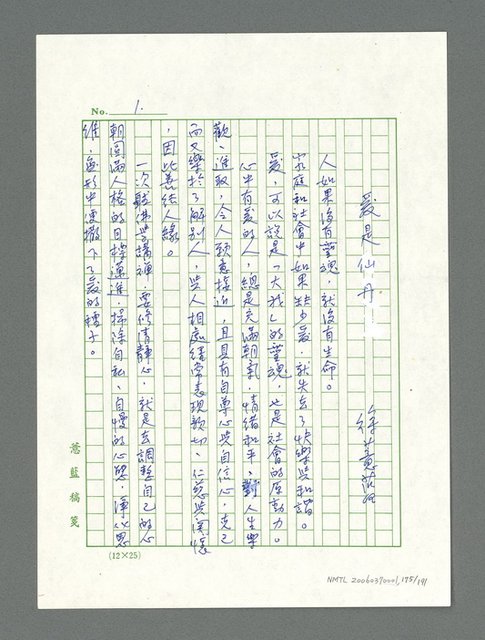 No. 1.
愛是仙丹
徐薏藍
人如果沒有靈魂，就沒有生命。
家庭和社會中如果缺少愛，就失去了快樂與和諧。
愛，可以說是「大我」的靈魂，也是社會的原動力。
心中有愛的人，總是充滿朝氣，情緒和平，對人生樂
觀、進取，令人願意接近，且具有自尊心與自信心，克己
而又樂於了解別人，與人相處經常表現親切、仁慈與關懷
，因此善結人緣。
一次聽佛學講禪，要修清靜心，就是去調整自己的心
朝圓滿人格的目標邁進，掃除自私、自慢的心態，淨化思
維，無形中便撒下了愛的種子。
薏藍稿箋
(12×25)
NMTL 20060370001, 175/191